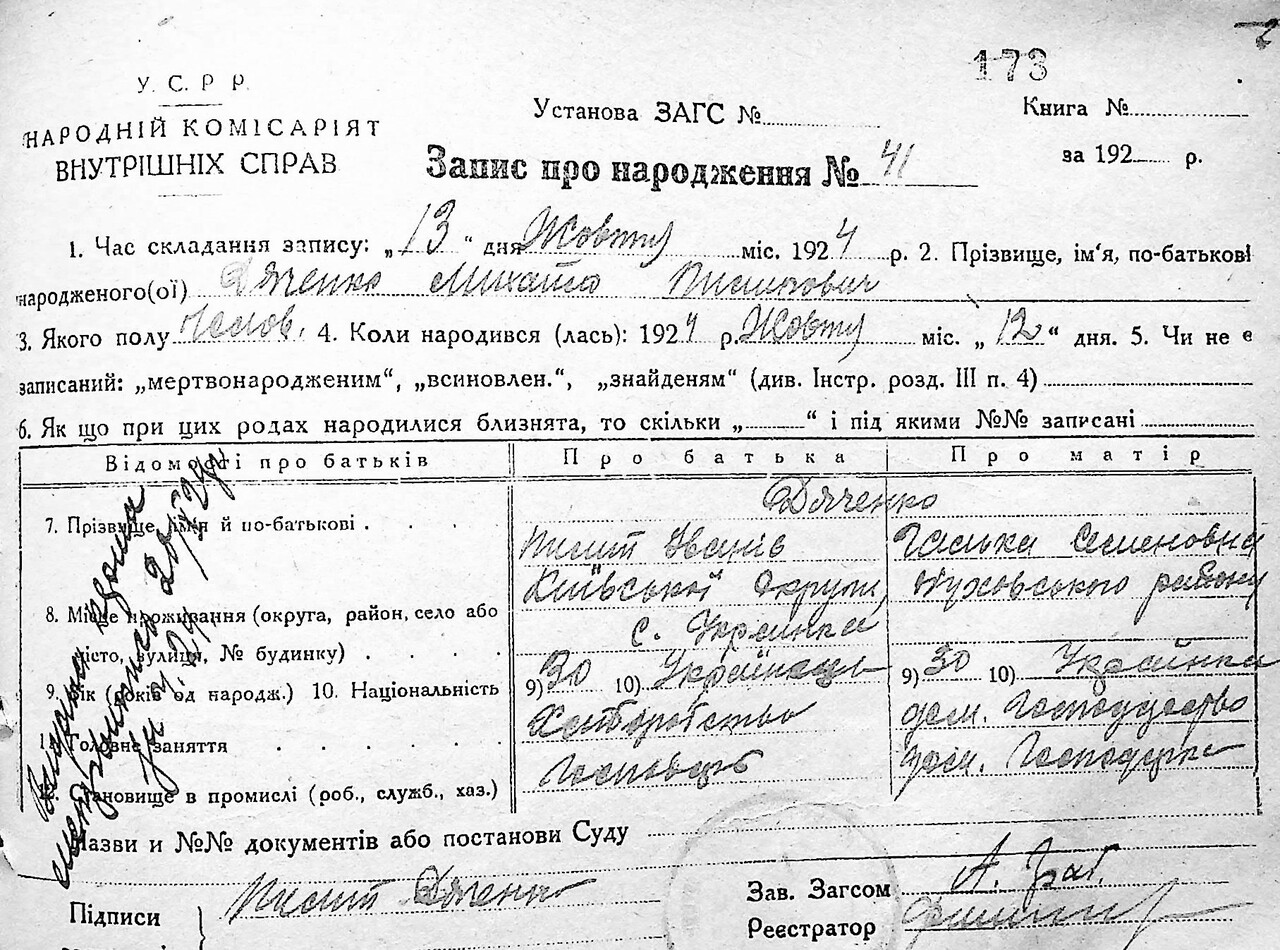 173
У. С. Р Р.
НАРОДНІЙ КОМІСАРІЯТ
ВНУТРІШНІХ СПРАВ
Установа ЗАГС №
Книга №
Запис про народження № 41
за 192 р.
1. Час складання запису: „13“ дня Жовтня міс. 1924 р. 2. Прізвище, ім‘я, по-батькові
народженого(ої) Дяченко Михайло Пилипович
3. Якого полу 4. Коли народився (лась): 1924 р. Жовтня міс. „12“ дня. 5. Чи не є
записаний: „мертвонародженим“, „всиновлен.“, „знайденям“ (див. Інстр. розд. III п. 4)
6. Як що при цих родах народилися близнята, то скільки „ “ і під якими №№ записані
Відомості про батьків Про батька Про матір
Дяченко
7. Прізвище, імʼя й по-батькові Пилип Іванів Гаська Семеновна
Київської Округи, району
8. Місце проживання (округа, район, село або
с. Українка
місто, вулиця, № будинку)
9. Вік (років од народж.) 10. Національність 9) 30 10) Українець 9) 30 10) Українка
Головне заняття Хліборобство дом. Господарство
становище в промислі (роб., служб., хаз.) дом.
Назви и №№ документів або постанови Суду
Підписи Пилип Дяченко
Зав. Загсом
Реєстратор